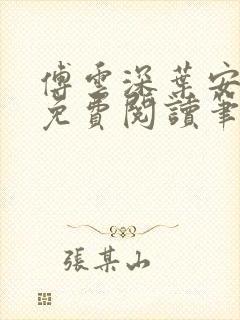 傅雲深葉安
免費閱讀筆
張某山